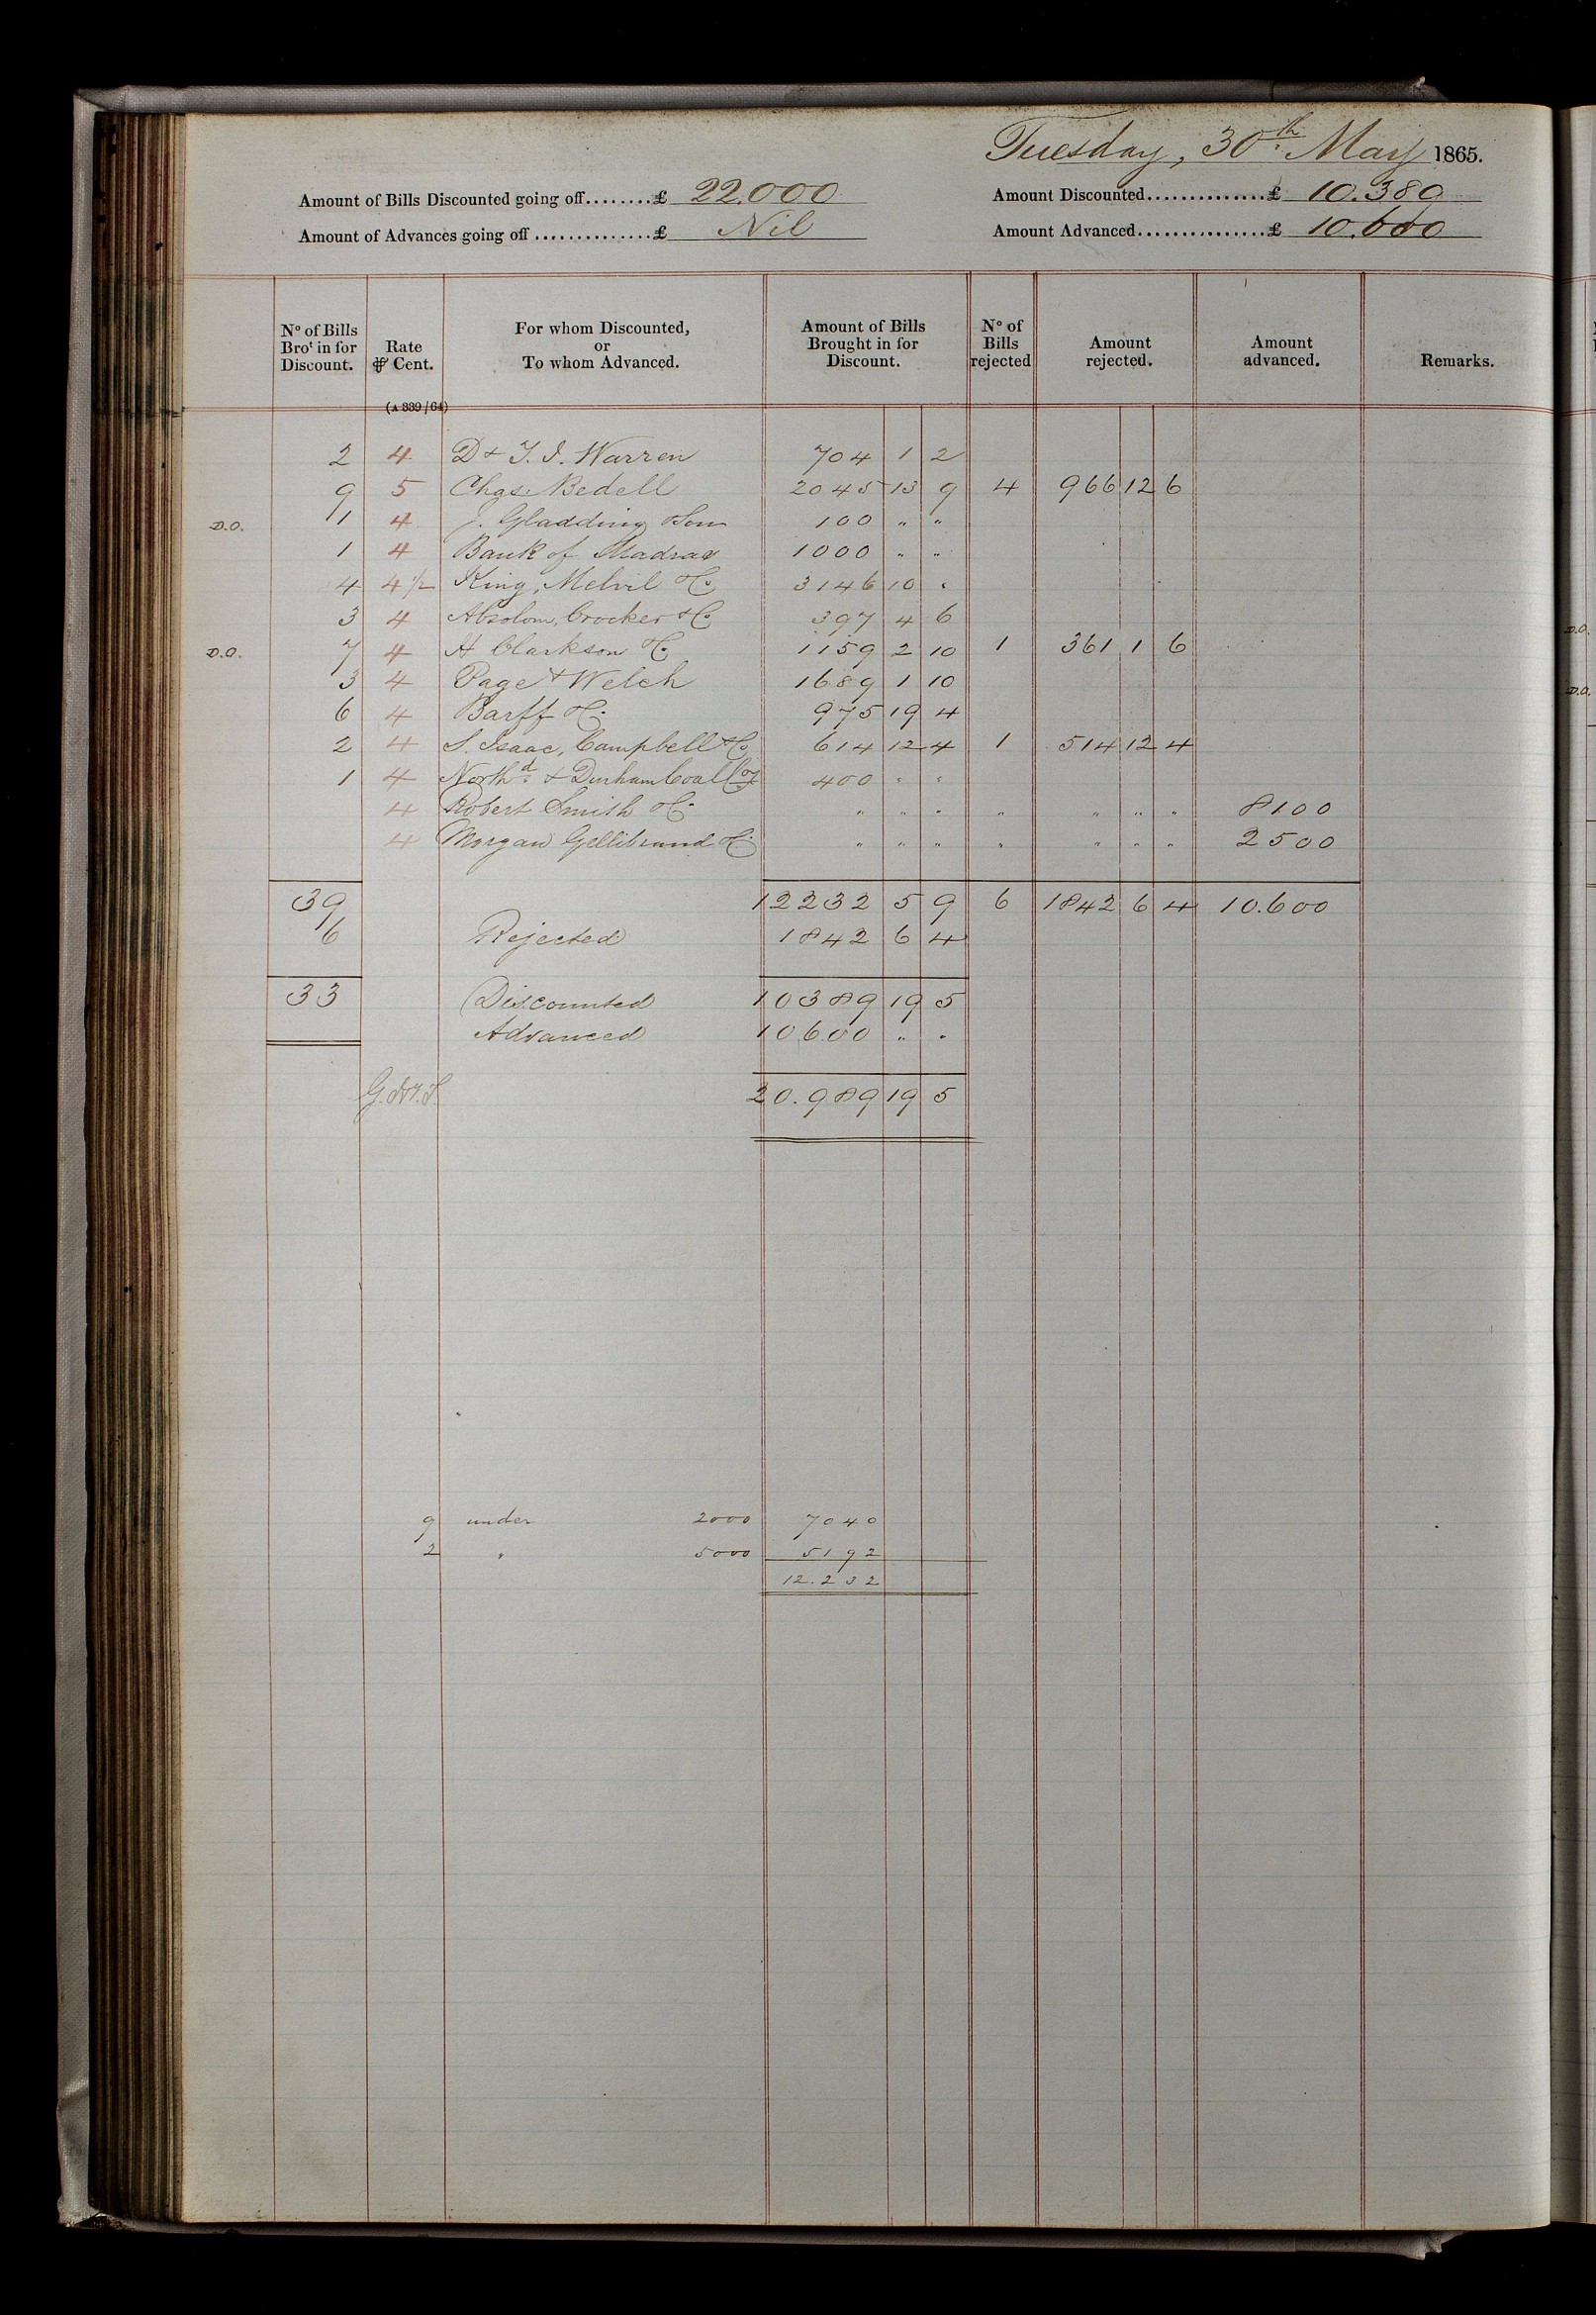 Tuesday, 30th May 1865.
Amount of Bills Discounted going off........£ 22.000 Amount Discounted..............£ 10.389
Amount of Advances going off ..............£ Nil Amount Advanced...............£ 10.600
No of Bills Brot in for Discount. Rate ⅌ Cent. For whom Discounted, or To whom Advanced. Amount of Bills Brought in for Discount. No of Bills rejected Amount rejected. Amount advanced. Remarks.
(A 339/64)
2 4 D & T. I. Warren 704 1 2
9 5 Chas. Bedell 2045 13 9 4 966 12 6
D.O. 1 4 J. Gladding & Son 100 " "
1 4 Bank of Madras 1000 " "
4 4 1/2 King, Melvil & Co 3146 10 "
3 4 Absolom, Crocker & Co 397 4 6
D.O. 7 4 H Clarkson & Co 1159 2 10 1 361 1 6
3 4 Page & Welch 1689 1 10
6 4 Barff & Co 975 19 4
2 4 S. Isaac, Campbell & Co 614 12 4 1 514 12 4
1 4 Northd & Durham Coal Coy 400 " "
4 Robert Smith & Co " " " " " " " 8100
4 Morgan Gellibrand & Co " " " " " " " 2500
39 12232 5 9 6 1842 6 4 10.600
6 Rejected 1842 6 4
33 Discounted 10389 19 5
Advanced 10600 " "
20.989 19 5
9 under 2000 7040
2 " 5000 5192
12.232
D.O.
D.O.